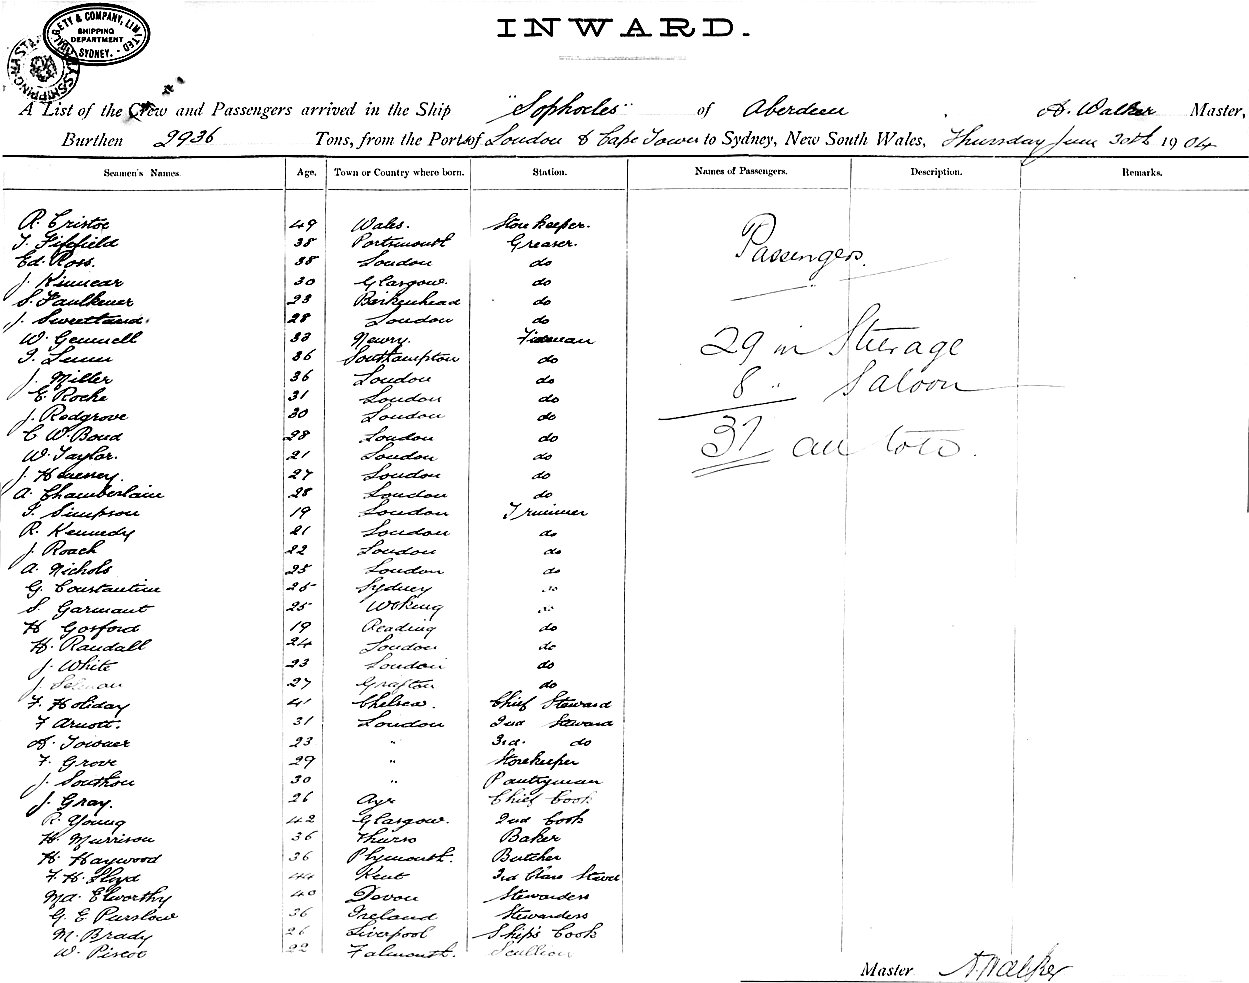 DALGETY & COMPANY, LIMITED
SHIPPING
DEPARTMENT
SYDNEY.
INWARD.
A List of the Crew and Passengers arrived in the Ship "Sophocles" of Aberdeen A. Walker Master,
Burthen 2936 Tons, from the Port of London & Cape Town to Sydney, New South Wales, Thursday June 30th 1904
Seamen's Names. Age. Town or Country where born. Station. Names of Passengers. Description. Remarks.
R. Cristoe 49 Wales. Storekeeper.
T. Fiffield 38 Portsmouth Greaser.
Ed. Ross. 38 London do
J. Kinnear 30 Glasgow. do
S. Faulkner 23 Birkenhead do
J. Sweetland. 28 London do
W. Gemmell 33 Newry. Fireman
T. Lunn 36 Southampton do
J. Miller 36 London do
E. Roche 31 London do
J. Redgrove 30 London do
C W. Bond 28 London do
W. Taylor. 21 London do
J. H 27 London do
A. Chamberlain 28 London do
T. Simpson 19 London Trimmer
R. Kennedy 21 London do
J. Roach 22 London do
A. Nichols 25 London do
G. Constantine 25 Sydney do
S. Garmant 25 Woking do
H Gosford 19 Reading do
H. Randall 24 London do
J. White 23 London do
J. Selman 27 Grafton do
F. Holiday 41 Chelsea. Chief Steward
F Arnott. 31 London 2nd Steward
A. Towner 23 " 3rd. do
F. Grove 29 " Storekeeper
J. Southon 30 " Pantryman
J. Gray. 26 Ayr Chief Cook
R. Young 42 Glasgow. 2nd Cook
H. Murrison 36 Thurso Baker
H Haywood 36 Plymouth. Butcher
F. H. Lloyd 44 Kent 3rd Class Stewd
Md. Elworthy 40 Devon Stewardess
G. E Purslow 36 Ireland Stewardess
M. Brady 26 Liverpool Ship's Cook
W. Piscoe 22 Falmouth. Scullion
Passengers.
29 in Steerage
8 " Saloon
37 all told.
Master A. Walker